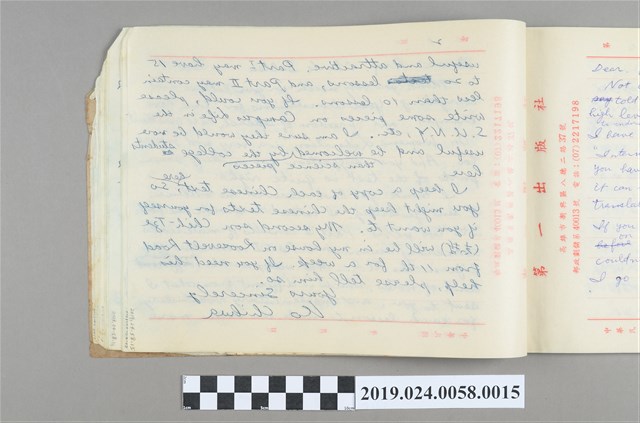 useful and attractive. Part I may have 15
to 20 lessons, and Part II may contain
less than 10 lessons. If you could, please
write some pieces on Campus Life in the
S.U.N.Y., etc. I am sure they would be very
useful and be welcomed by the college students
here than science pieces
I keep a copy of each Chinese text here. So
you might keep the Chinese texts for yourself
if you want to. My second son
will be in my house on Roosevelt Road
from 11th for a week. If you need his
help, please tell him so.
Yours Sincerely
Ko Chihua
第一出版社
電話:(07)2217198
Dear
Not
told
high level
I have
you have
it can
translat
If you
couldn
I go
2019.024.0058.0015